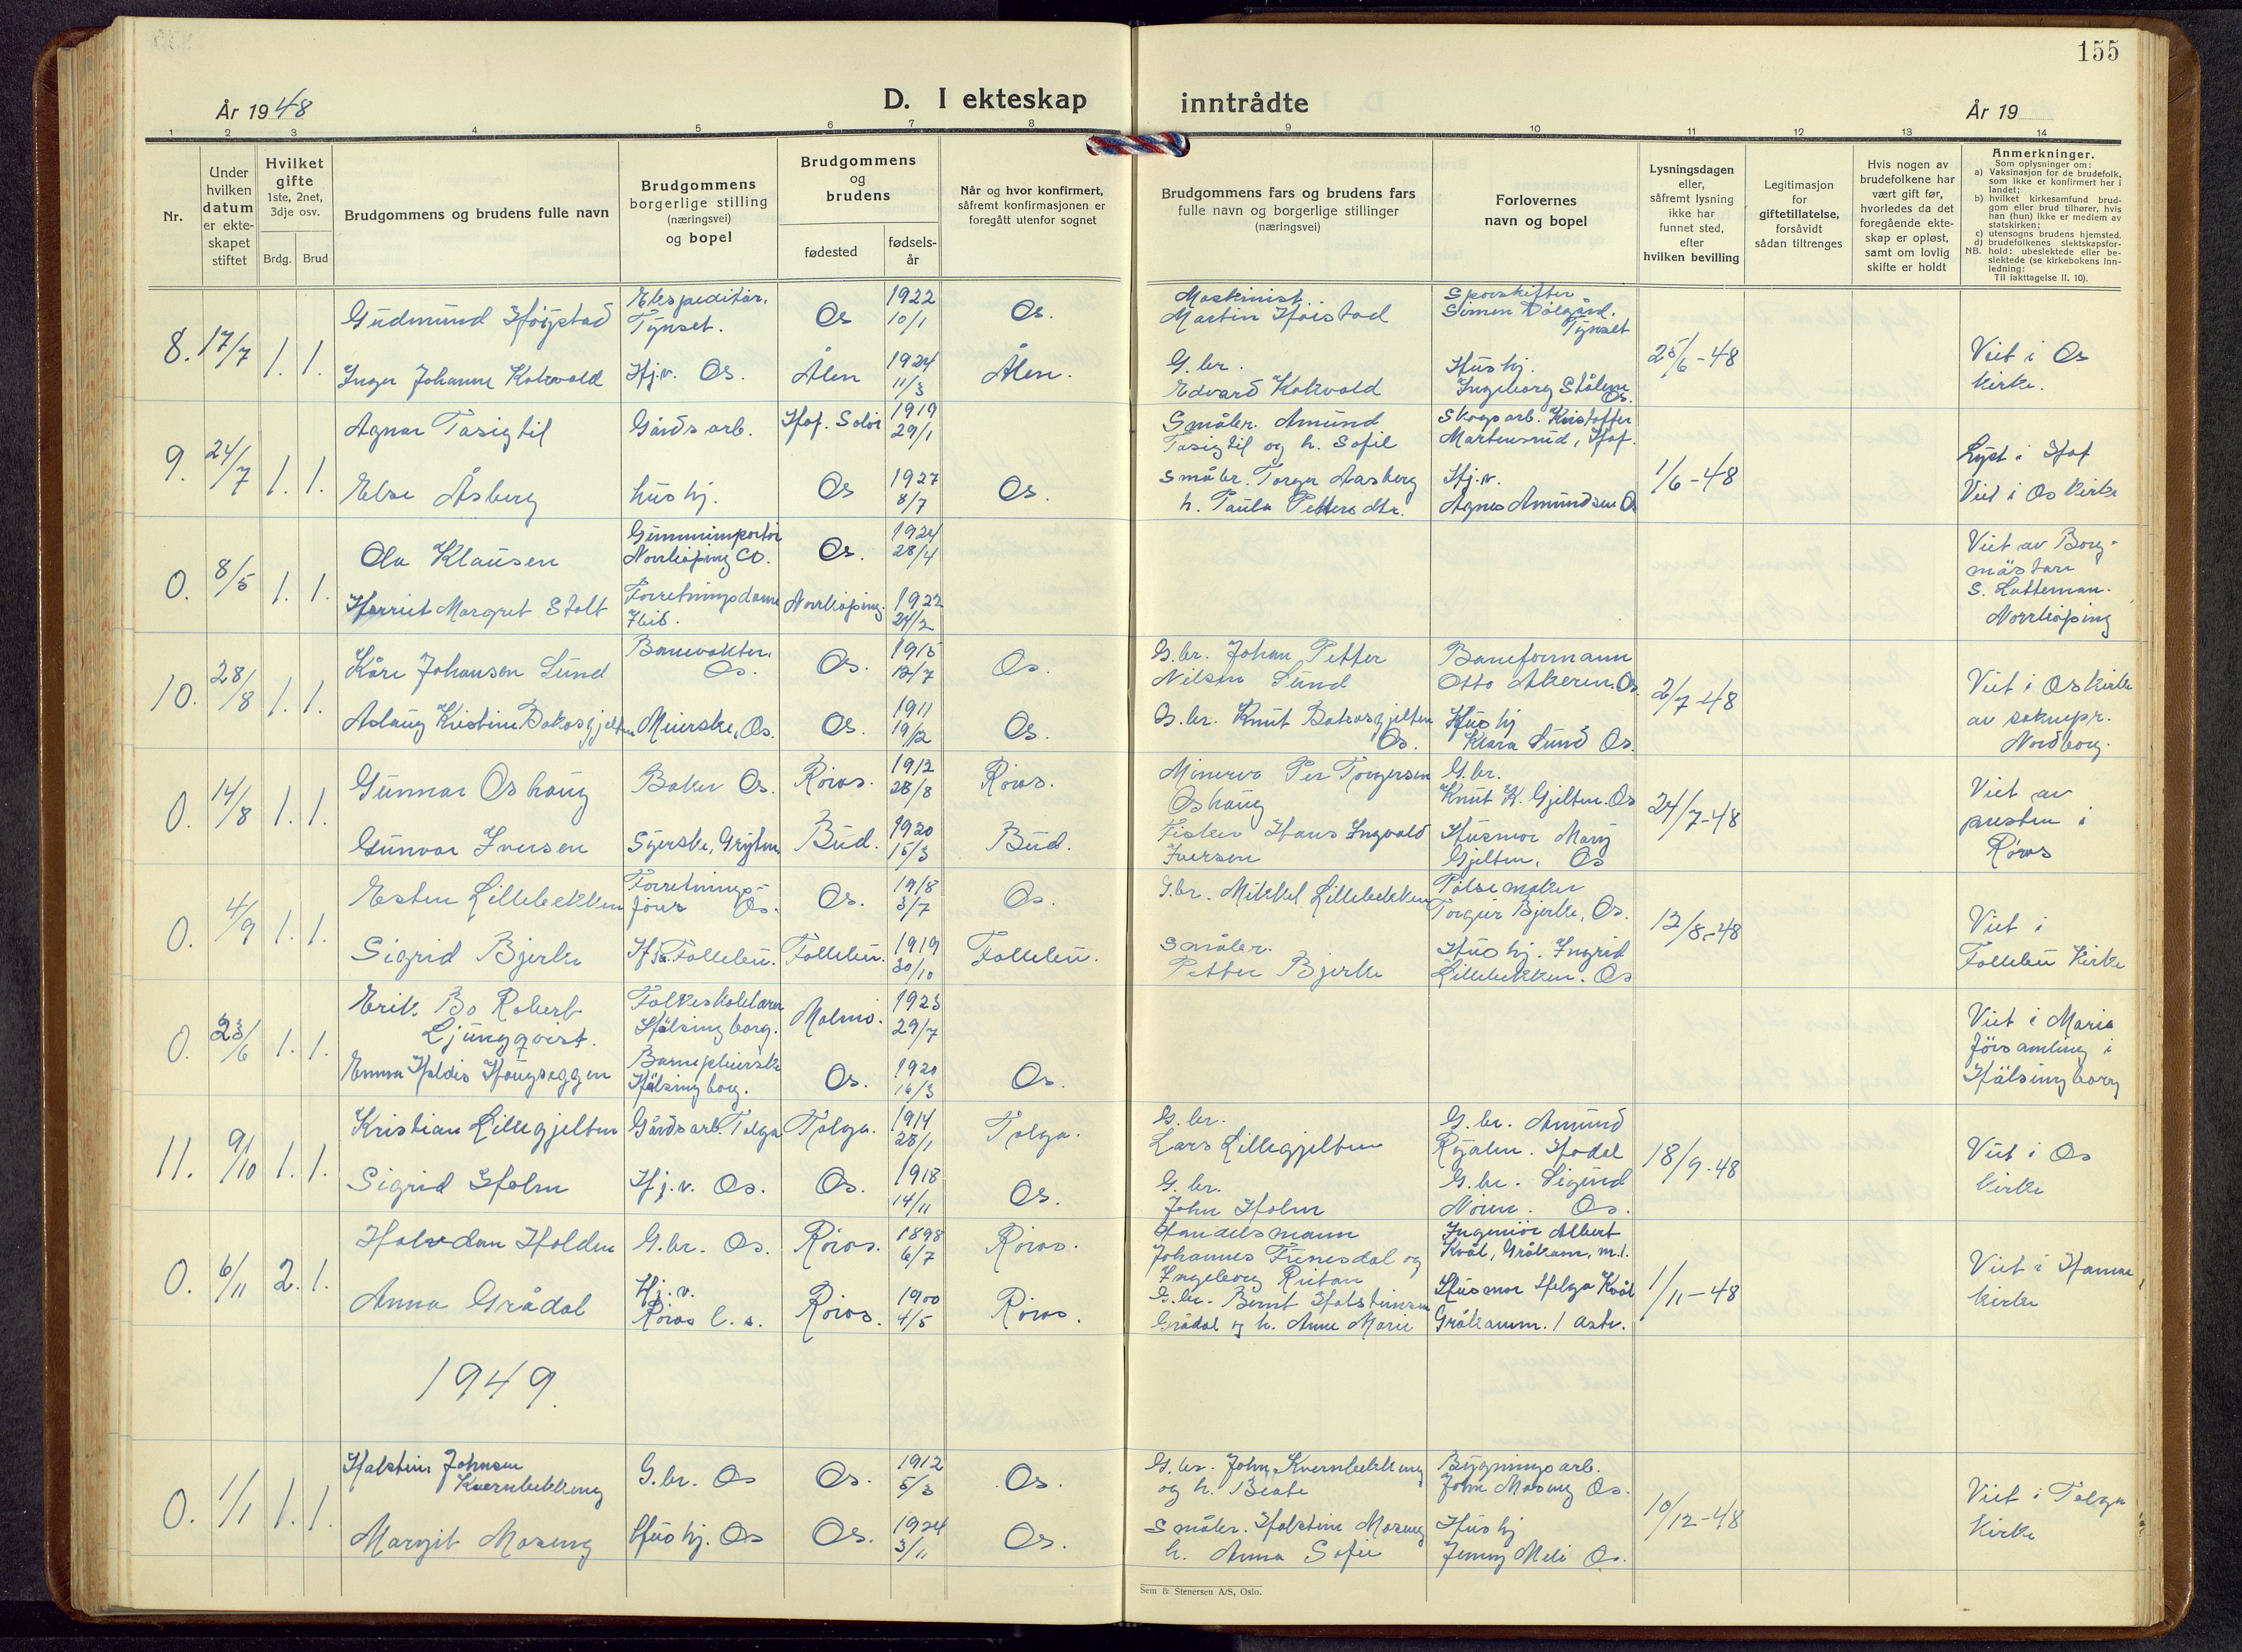 155
År 1948
D. I ekteskap
inntrådte
År 19
1 2 3 4 5 6 7 8 9 10 11 12 13 14
Nr.
Under
hvilken
datum
er ekte-
skapet
stiftet
Hvilket
gifte
1ste, 2net,
3dje osv.
Brdg. Brud
Brudgommens og brudens fulle navn
Brudgommens
borgerlige stilling
(næringsvei)
og bopel
Brudgommens
og
brudens
fødested
fødsels-
år
Når og hvor konfirmert,
såfremt konfirmasjonen er
foregått utenfor sognet
Brudgommens fars og brudens fars
fulle navn og borgerlige stillinger
(næringsvei)
Forlovernes
navn og bopel
Lysningsdagen
eller,
såfremt lysning
ikke har
funnet sted,
efter
hvilken bevilling
Legitimasjon
for
giftetillatelse,
forsåvidt
sådan tiltrenges
Hvis nogen av
brudefolkene har
vært gift før,
hvorledes da det
foregående ekte-
skap er opløst,
samt om lovlig
skifte er holdt
Anmerkninger.
Som oplysninger om:
a) Vaksinasjon for de brudefolk,
som ikke er konfirmert her i
landet;
b) hvilket kirkesamfund brud-
gom eller brud tilhører, hvis
han (hun) ikke er medlem av
statskirken;
c) utensogns brudens hjemsted.
d) brudefolkenes slektskapsfor-
NB. hold: ubeslektede eller be-
slektede (se kirkebokens inn-
ledning:
Til iakttagelse II. 10).
8. 17/7 1. 1.
Gudmund Høistad
Ekspeditør.
Tynset.
Os
1922
10/1
Os.
Maskinist
Martin Høistad
Sporskifter
Simen Dølgård.
Tynset
25/6-48
Viet i Os
kirke.
Inger Johanne Kokvold
Hj.v. Os.
Ålen
1924
11/3
Ålen.
G.br.
Edvard Kokvold
Hushj.
Ingeborg Stålene
Os.
9. 24/7 1. 1.
Agnar Tasigtil
Gårdsarb.
Hof. Solør
1919
29/1
Småbr. Amund
Tasigtil og h. Sofie
Skogsarb. Kristoffer
Martensrud, Hof.
1/6-48
Lyst i Hof
Viet i Os kirke
Else Åsberg
hushj.
Os
1927
8/7
Os.
Småbr. Torger Aasberg
h. Paula Pettersdtr.
Hj.v.
Agnes Amundsen Os
0. 8/5 1. 1.
Ola Klausen
Gummimportör
Norrkøping CO.
Os.
1924
28/4
Viet av Borg-
mästare
S. Latteman.
Norrkøping
Harriet Margret Stolt
Forretningsdame
Ibid.
Norrkøping.
1922
24/2
10. 28/8 1. 1.
Kåre Johansen Lund
Banevokter.
Os.
Os.
1915
12/7
Os.
G.br. Johan Petter
Nilsen Lund
Baneformann
Otto Akeren. Os.
2/7-48
Viet i Os kirke
av soknepr.
Nordborg.
Aslaug Kristine Bakosgjelten
Meierske, Os.
Os.
1911
19/2
Os.
G.br. Knut Bakosgjelten
Os.
Hushj
Klara Lund Os.
0. 14/8 1. 1.
Gunnar Oshaug
Baker Os.
Røros.
1912
28/8
Røros.
Minerva Per Torgersen
Oshaug
G.br.
Knut K. Gjelten. Os
24/7-48
Viet av
presten i
Røros
Gunvor Iversen
Syerske, Grytten
Bud.
1920
15/3
Bud.
Fisker Hans Ingvald
Iversen
Husmor Mary
Gjelten, Os
0. 4/9 1. 1.
Esten Lillebekken
Forretnings-
fører Os.
Os.
1918
3/7
Os.
G.br. Mikkel Lillebekken
Pølsemaker
Torgeir Bjerke, Os.
12/8-48
Viet i
Follebu Kirke
Sigrid Bjerke
Follebu.
Follebu.
1919
30/10
Follebu.
Småbr.
Petter Bjerke
Hushj. Ingrid
Lillebekken. Os
0. 23/6 1. 1.
Erik Bo Robert
Ljungqvist.
Folkeskolelærer
Hälsingborg.
Malmö.
1923
29/7
Viet i Maria
församling i
Hälsingborg
Emma Haldis Haugseggen
Barnepleierske
Hälsingborg.
Os.
1920
16/3
Os.
11. 9/10 1. 1.
Kristian Lillegjelten
Gårdsarb. Tolga
Tolga.
1914
28/1
Tolga.
G.br.
Lars Lillegjelten
G.br. Amund
Ryalen. Hodal
18/9-48
Viet i Os
Kirke
Sigrid Holm
Hj.v. Os.
Os.
1918
14/11
Os.
G.br.
John Holm
G.br. Sigurd
Noren. Os.
0. 6/11 2. 1.
Halvdan Holden
G.br. Os.
Røros.
1898
6/7
Røros.
Handelsmann
Johannes Funesdal og
Ingeborg Ruitan
Ingeniør Albert
Kvål, Gråkam, m.l.
1/11-48
Viet i Hamar
kirke
Anna Grådal
Hj.v.
Røros l.s.
Røros.
1900
4/5
Røros.
G.br. Bernt Holsteinsen
Grådal og h. Anne Marie
Husmor Helga Kvål
Gråkamm. / Astv.
1949.
0. 1/1 1. 1.
Halstein Johnsen
Kvernbekkeng
G.br. Os
Os.
1912
5/3
Os.
G.br. John Kvernbekkeng
og h. Beate
Bygningsarb.
John Moseng Os.
10/12-48
Viet i Tolga
Kirke
Margit Moseng
Hushj. Os
Os.
1924
3/11
Os.
Småbr. Holstein Moseng
h. Anna Sofie
Hushj
Jenny Meli Os.
Sem & Stenersen A/S, Oslo.